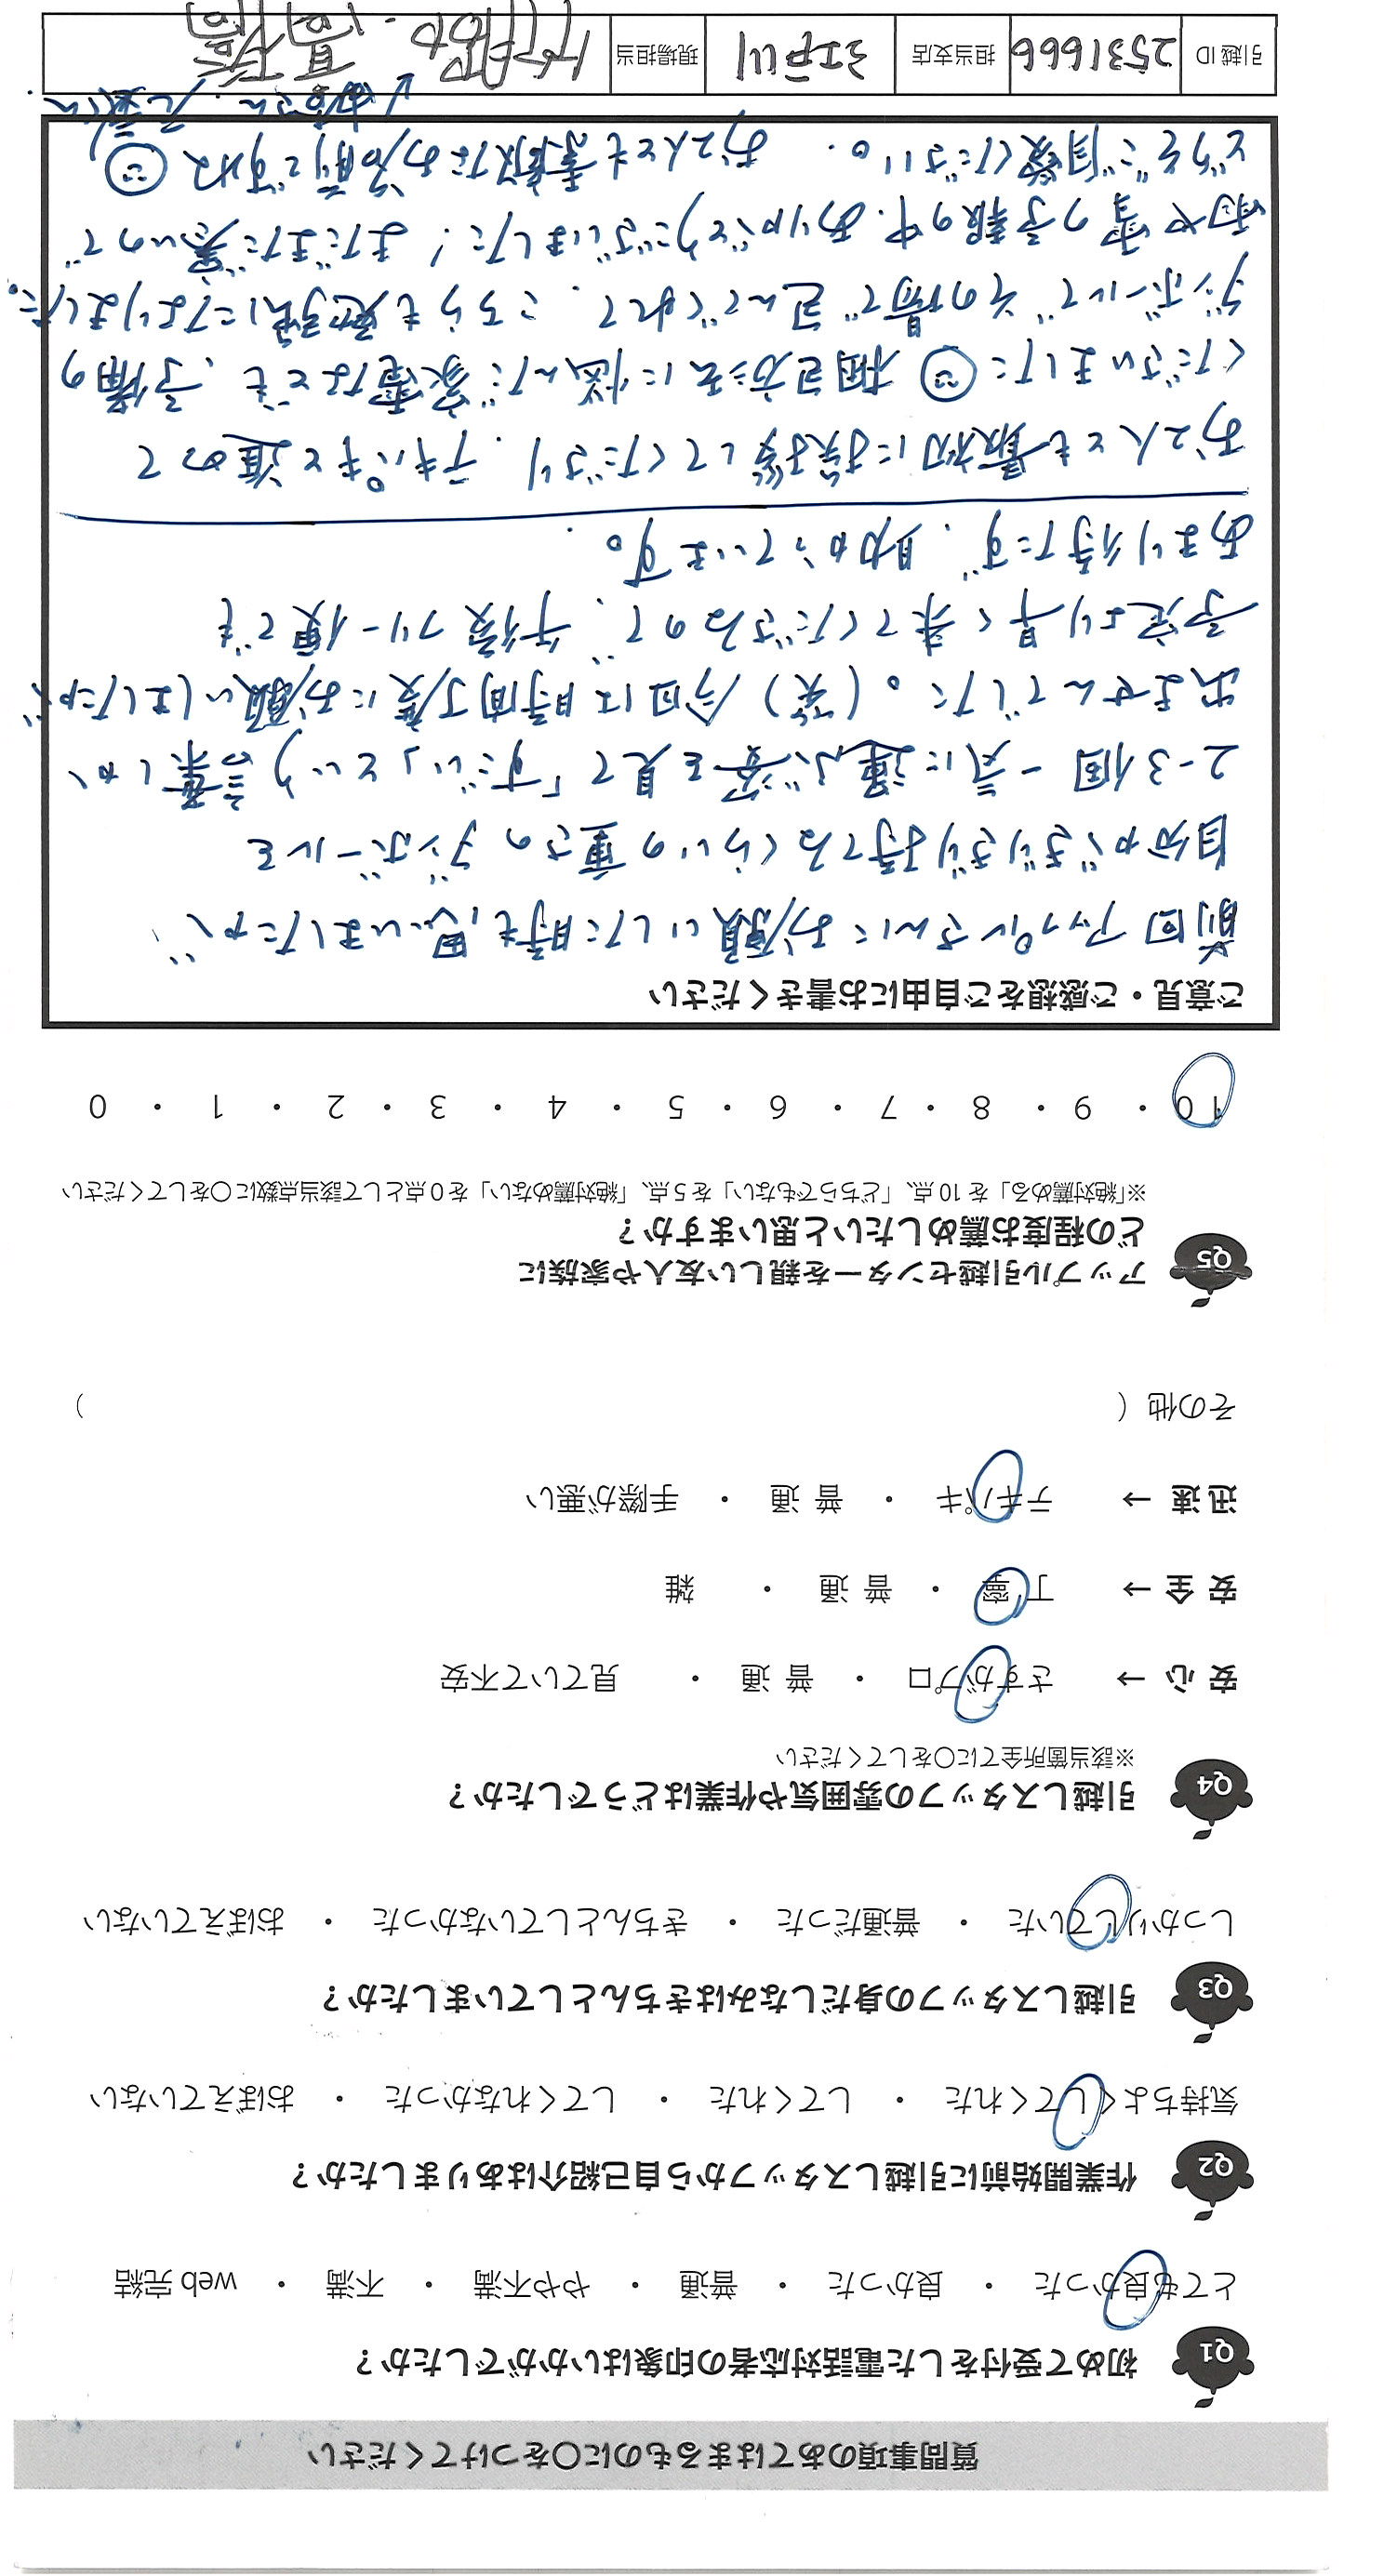 質問事項のあてはまるものに〇をつけてください
Q1 初めて受付をした電話対応者の印象はいかがでしたか？
とても良かった ・ 良かった ・ 普通 ・ やや不満 ・ 不満 ・ web 完結
Q2 作業開始前に引越しスタッフから自己紹介はありましたか？
気持ちよくしてくれた ・ してくれた ・ してくれなかった ・ おぼえていない
Q3 引越しスタッフの身だしなみはきちんとしていましたか？
しっかりしていた ・ 普通だった ・ きちんとしていなかった ・ おぼえていない
Q4 引越しスタッフの雰囲気や作業はどうでしたか？
※該当箇所全てに〇をしてください
安 心 → さすがプロ ・ 普 通 ・ 見ていて不安
安 全 → 丁 寧 ・ 普 通 ・ 雑
迅 速 → テキパキ ・ 普 通 ・ 手際が悪い
その他（ ）
Q5 アップル引越センターを親しい友人や家族に
どの程度お薦めしたいと思いますか？
※「絶対薦める」を 10 点、「どちらでもない」を 5 点、「絶対薦めない」を 0 点として該当点数に〇をしてください
10 ・ 9 ・ 8 ・ 7 ・ 6 ・ 5 ・ 4 ・ 3 ・ 2 ・ 1 ・ 0
ご意見・ご感想をご自由にお書きください
前回アップルさんにお願いした時も思いましたが、
自分がぎりぎり持てるくらいの重さのダンボールを
2-3個一気に運ぶ姿を見て「すごい」という言葉しか
出ませんでした。(笑) 今回は時間丁度にお願いしましたが
予定より早く来てくださるので、午後フリー便でも
あまり待たず、助かっています。
お2人とも最初に挨拶してくださり、テキパキと進めて
くださいました 梱包方法に悩んだ家電なども、予備の
ダンボールで その場で包んでくれて、こちらも勉強になりました。
雨や雪の予報の中、ありがとうございました！まだまだ寒いので
どうぞご自愛ください。 お2人とも素敵なお名前ですね
引越 ID 2531666 担当支店 江戸川 現場担当